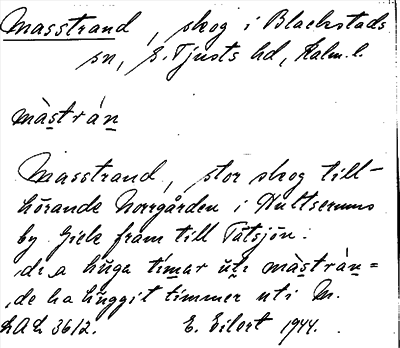 Masstrand, skog i Blackstads
sn, S. Tjusts hd, Kalm. l.
màstrán
Masstrand, stor skog till-
hörande Norrgården i Hultserums
by. Gick fram till Tätsjön:
de a huga timar uti màstrán =
de ha huggit timmer uti M.
LAL 3612. E. Eilert 1944.